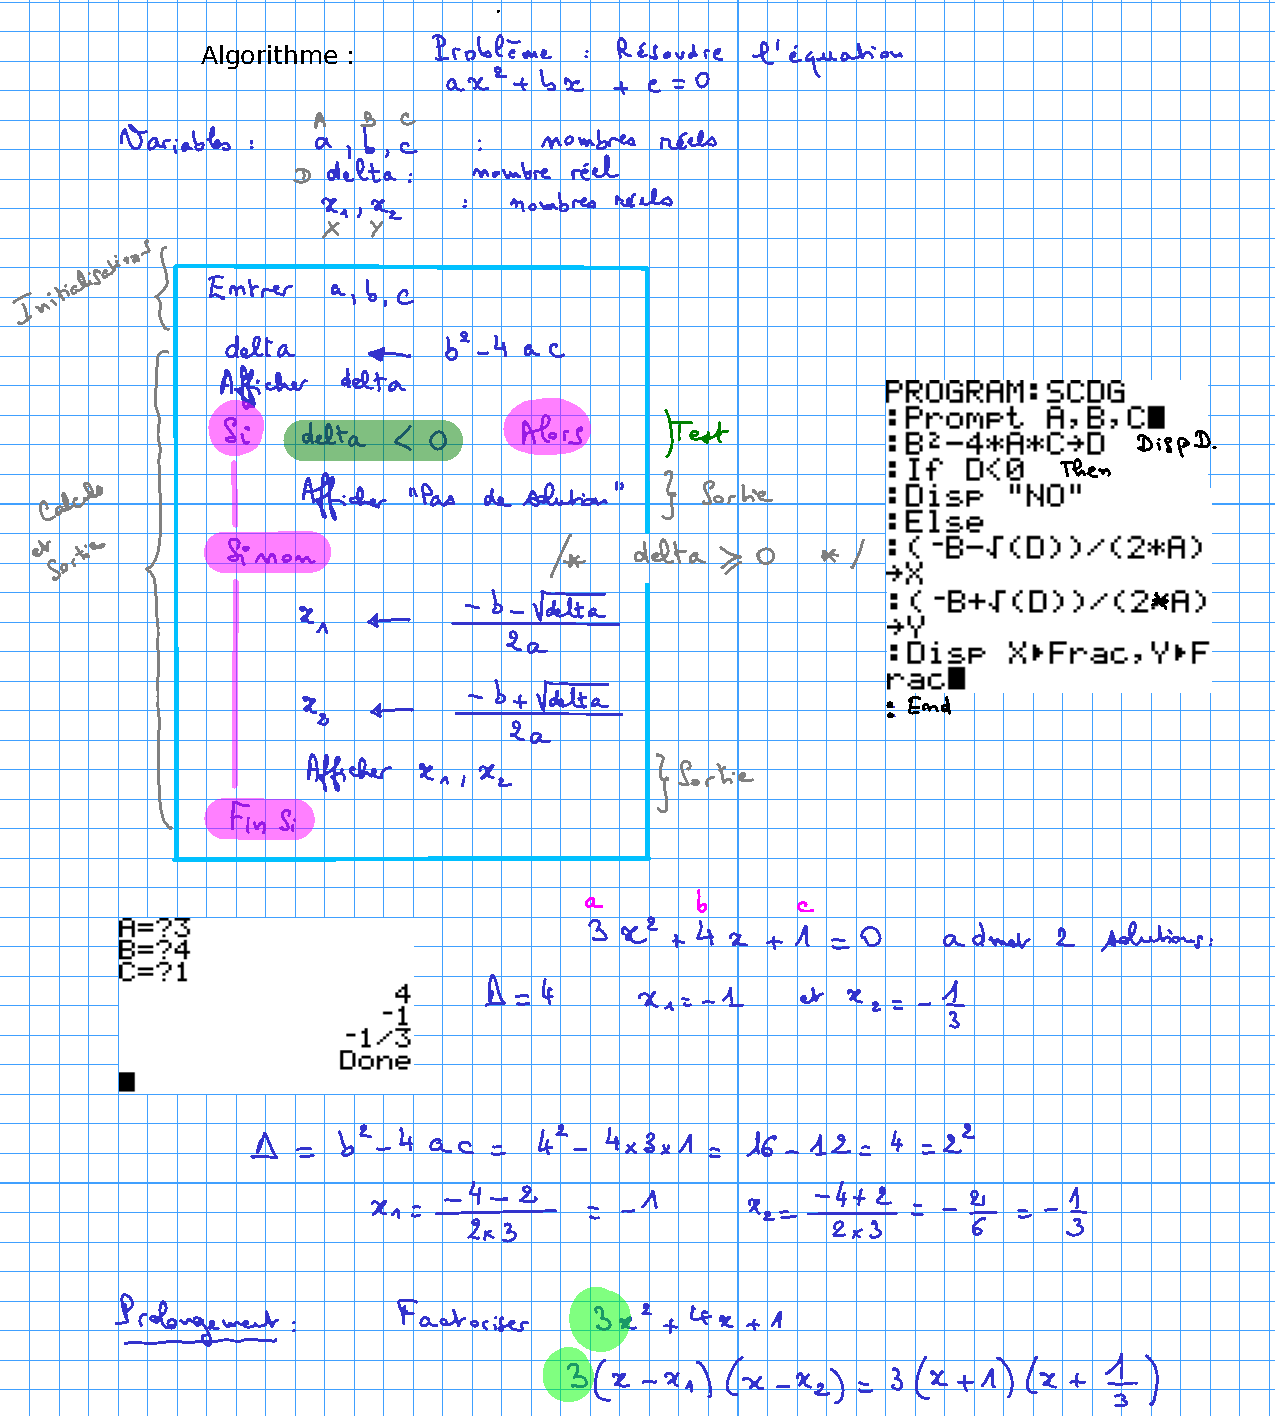 Algorithme : Problème : Résoudre l'équation
ax² + bx + c = 0
A B C
Variables : a, b, c : nombres réels
D delta : nombre réel
x₁, x₂ : nombres réels
X Y
Initialisations
Entrer a, b, c
delta ← b² - 4 ac
Afficher delta
Si delta < 0 Alors } Test
Afficher "Pas de solution" } Sortie
Calculs
et
Sortie
Sinon /* delta ⩾ 0 */
x₁ ← (-b - √delta) / 2a
x₂ ← (-b + √delta) / 2a
Afficher x₁, x₂ } Sortie
Fin Si
PROGRAM:SCDG
:Prompt A,B,C
:B²-4*A*C→D Disp D.
:If D<0 Then
:Disp "NO"
:Else
:(-B-√(D))/(2*A)
→X
:(-B+√(D))/(2*A)
→Y
:Disp X▶Frac,Y▶F
rac
: End
A=?3
B=?4
C=?1
4
-1
-1/3
Done
a b c
3x² + 4x + 1 = 0 admet 2 solutions :
Δ = 4 x₁ = -1 et x₂ = -1/3
Δ = b² - 4 ac = 4² - 4×3×1 = 16 - 12 = 4 = 2²
x₁ = (-4 - 2)/(2×3) = -1 x₂ = (-4 + 2)/(2×3) = -2/6 = -1/3
Prolongement : Factoriser 3x² + 4x + 1
3(x - x₁)(x - x₂) = 3(x + 1)(x + 1/3)